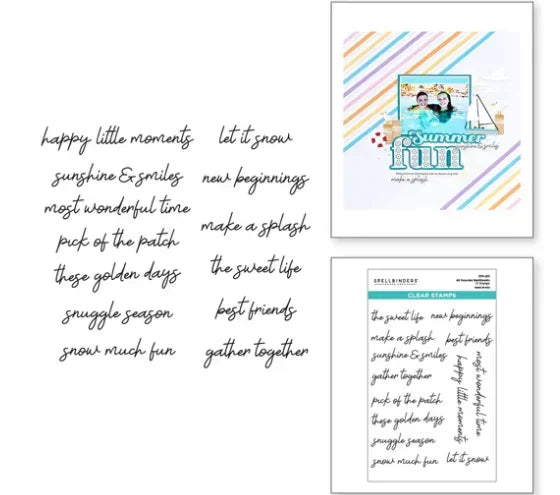 happy little moments
sunshine & smiles
most wonderful time
pick of the patch
these golden days
snuggle season
snow much fun
let it snow
new beginnings
make a splash
the sweet life
best friends
gather together
Summer
fun
sunshine & smiles
make a splash
SPELLBINDERS
CLEAR STAMPS
the sweet life
new beginnings
make a splash
best friends
sunshine & smiles
gather together
pick of the patch
these golden days
snuggle season
snow much fun
happy little moments
most wonderful time
let it snow